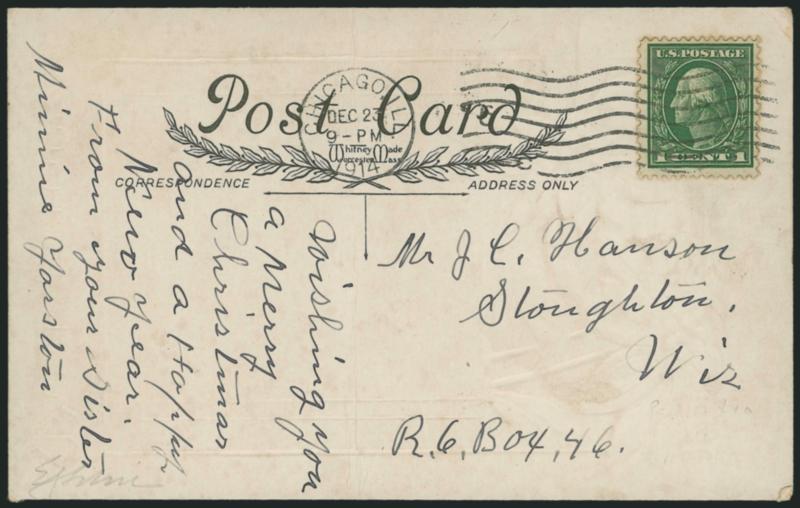 U.S. POSTAGE
1 CENT 1
Post Card
CHICAGO, ILL
DEC 23
9-PM
1914
Whitney Made
Worcester, Mass
CORRESPONDENCE
ADDRESS ONLY
Wishing you
a Merry
Christmas
and a Happy
New Year
From your Sister
Minnie
Mr J. C. Hanson
Stoughton,
Wis
R.6. Box, 46.